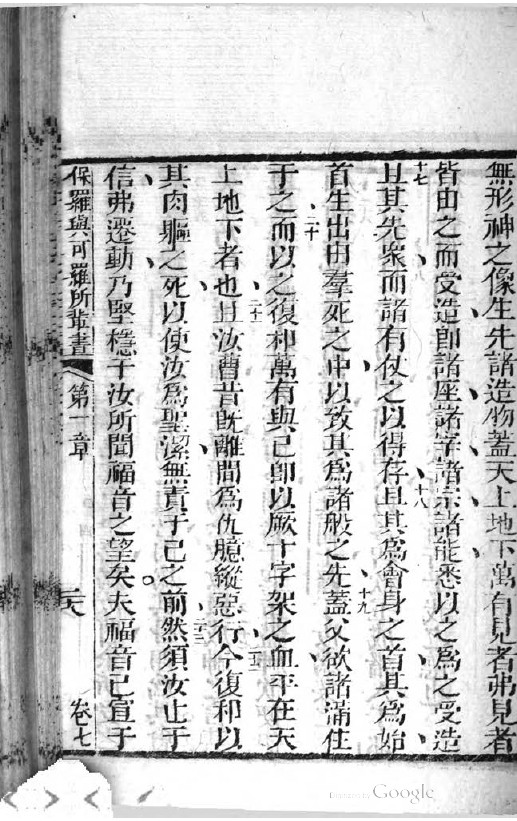 無形神之像生先諸造物蓋天上地下萬有見者弗見者
皆由之而受造卽諸座諸宰諸宗諸能悉以之爲之受造
十七
且其先衆而諸有仗之以得存且其爲會身之首其爲始
十八
首生出由羣死之中以致其爲諸般之先蓋父欲諸滿住
十九
于之而以之復和萬有與己卽以厥十字架之血平在天
二十
上地下者也且汝曹昔旣離間爲仇臆縱惡行今復和以
二十一
其肉軀之死以使汝爲聖潔無責于己之前然須汝止于
二十二
信弗遷動乃堅穩于汝所聞福音之望矣夫福音已宣于
二十三
保羅與可羅所輩書 第一章 卷七
Google